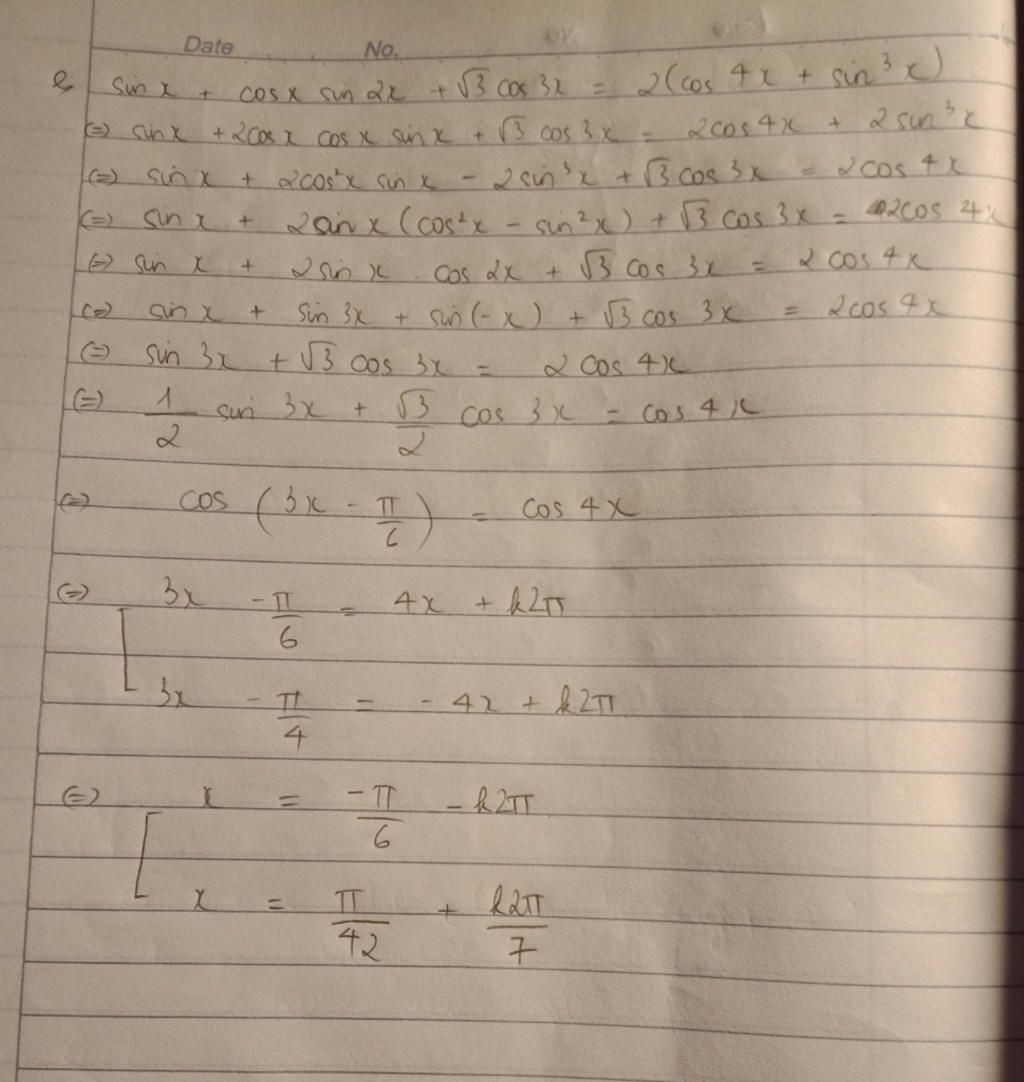 Date No.
e, sin x + cos x sin 2x + √3 cos 3x = 2(cos 4x + sin³x)
(=) sin x + 2cos x cos x sin x + √3 cos 3x = 2cos 4x + 2 sin³x
(=) sin x + 2cos²x sin x - 2sin³x + √3 cos 3x = 2cos 4x
(=) sin x + 2sin x (cos²x - sin²x) + √3 cos 3x = 2cos 4x
(=) sin x + 2sin x . cos 2x + √3 cos 3x = 2 cos 4x
(=) sin x + sin 3x + sin(-x) + √3 cos 3x = 2cos 4x
(=) sin 3x + √3 cos 3x = 2 cos 4x
(=) 1/2 sin 3x + √3/2 cos 3x = cos 4x
(=) cos (3x - π/6) = cos 4x
(=) [ 3x - π/6 = 4x + k2π
3x - π/4 = - 4x + k2π
(=) [ x = -π/6 - k2π
x = π/42 + k2π/7